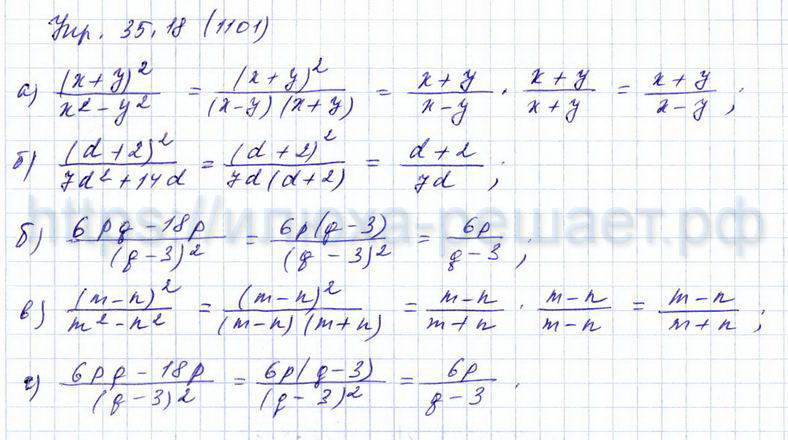 Упр. 35.18 (1101)
а) (x+y)²/(x²-y²) = (x+y)²/((x-y)(x+y)) = (x+y)/(x-y) · (x+y)/(x+y) = (x+y)/(x-y);
б) (d+2)²/(7d²+14d) = (d+2)²/(7d(d+2)) = (d+2)/(7d);
https://илюха-решает.рф
б) (6pq-18p)/(q-3)² = 6p(q-3)/(q-3)² = 6p/(q-3);
в) (m-n)²/(m²-n²) = (m-n)²/((m-n)(m+n)) = (m-n)/(m+n) · (m-n)/(m-n) = (m-n)/(m+n);
г) (6pq-18p)/(q-3)² = 6p(q-3)/(q-3)² = 6p/(q-3).